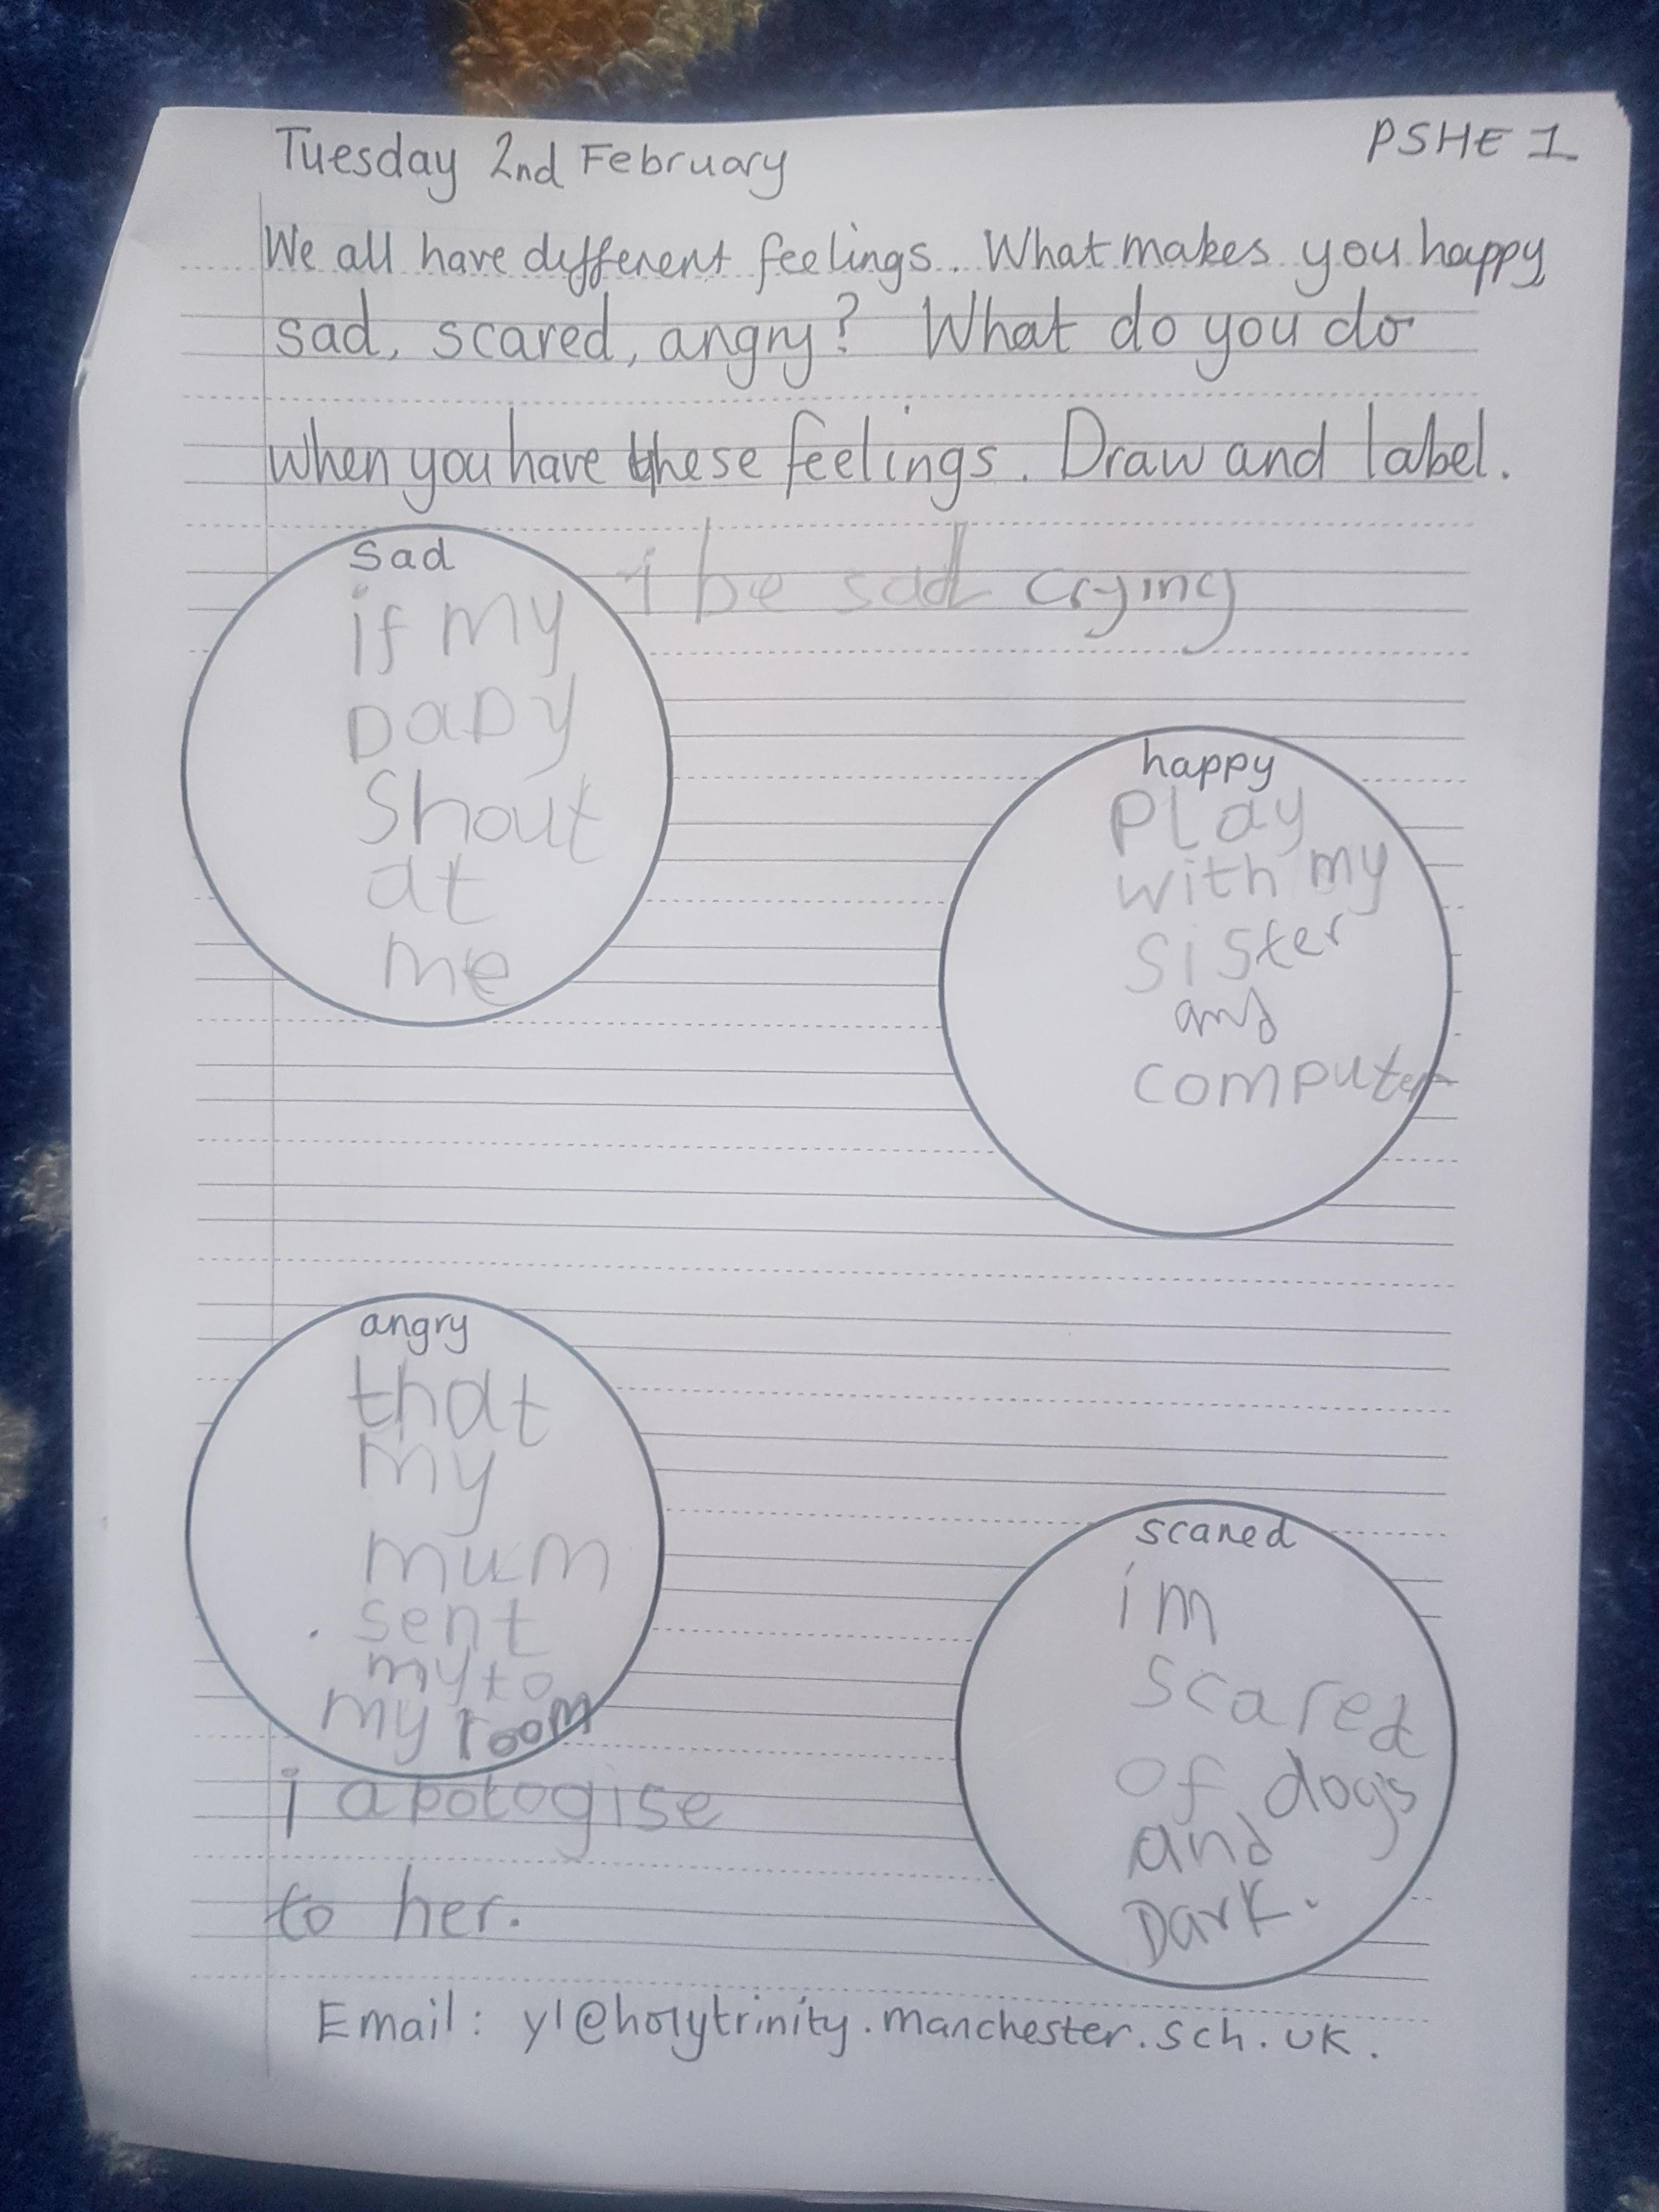 Tuesday 2nd February
PSHE 1
We all have different feelings. What makes you happy,
sad, scared, angry? What do you do
when you have these feelings. Draw and label.
sad
if my
DaDy
Shout
at
me
i be sad crying
happy
PLay
with my
sister
and
computer
angry
that
my
mum
sent
my to
my room
i apologise
to her.
scared
im
scared
of dogs
and
Dark.
Email: y1@holytrinity.manchester.sch.uk.